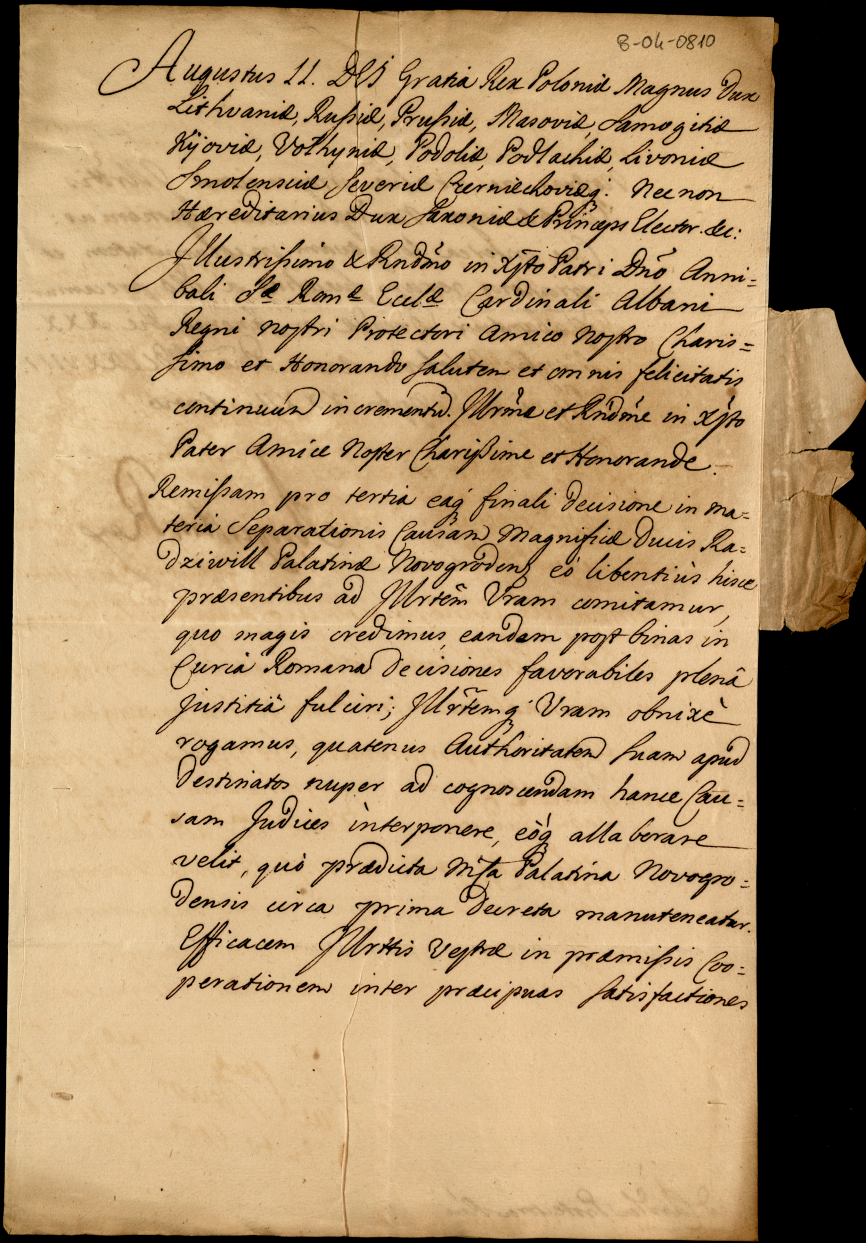 8-04-0810
Augustus II. DEI Gratia Rex Poloniæ Magnus Dux
Lithvaniæ, Rußiæ, Prußiæ, Masoviæ, Samogitiæ
Kijoviæ, Volhyniæ, Podoliæ, Podlachiæ, Livoniæ
Smolensciæ, Severiæ Czerniechoviæq. Nec non
Hæreditarius Dux Saxoniæ & Princeps Elector. &c:
Illustrißimo & Rndm̃o in Xp̃to Patri Dnõ Anni=
bali S.æ Rom.æ Eccl.æ Cardinali Albani
Regni nostri Protectori Amico Nostro Charis=
simo et Honorando Salutem et omnis felicitatis
continuum incrementũ. Illrm̃e et Rñdm̃e in Xp̃to
Pater Amice Noster Charißime et Honorande.
Remißam pro tertia eaq́ finali decisione in ma=
teria Separationis Causam Magnificæ Ducis Ra=
dziwill Palatinæ Novogroden̄s eò libentiùs hisce
præsentibus ad Illrtem̃ Vram comitamur,
quo magis credimus, eandem post binas in
Curiâ Romana decisiones favorabiles plenâ
justitiâ fulciri; Illrt̃emq́ Vram obnixè
rogamus, quatenus Authoritatem suam apud
destinatos nuper ad cognoscendam hance Cau=
sam Judices interponere, eòq́ allaborare
velit, quò prædicta Mf̃ca Palatina Novogro=
densis circa prima Decreta manuteneatur.
Efficacem Illrttis Vestræ in præmißis Coo=
perationem inter præcipuas satisfactiones